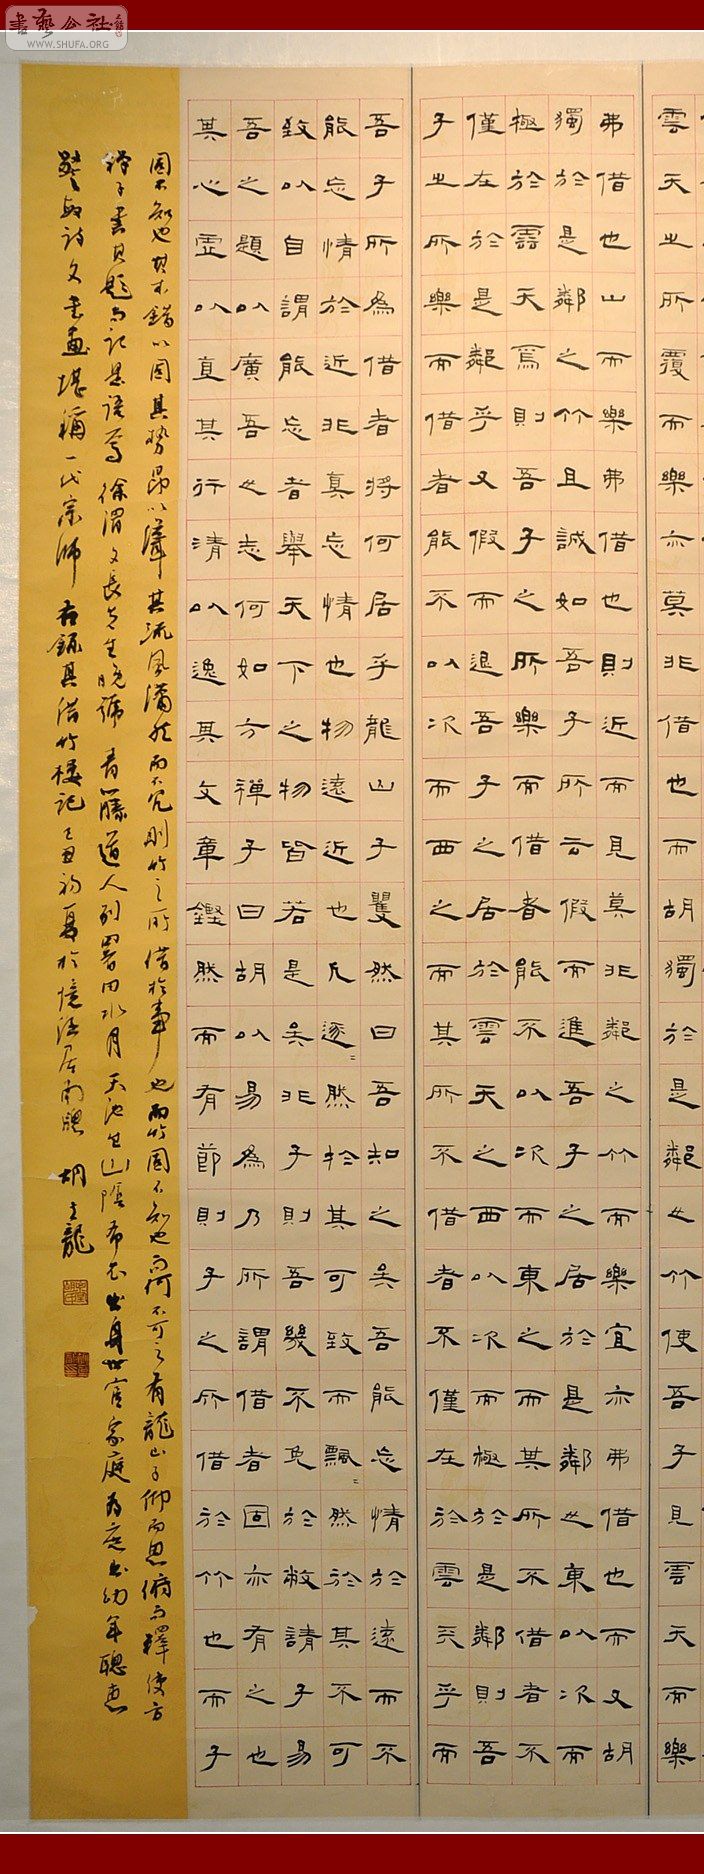 書藝公社
WWW.SHUFA.ORG
雲天之所覆而樂亦莫非借也而胡獨於是鄰之竹使吾子見雲天而樂
弗借也山而樂弗借也則近而見莫非鄰之竹而樂宜亦弗借也而又胡
獨於是鄰之竹且誠如吾子所云假而進吾子之居於是鄰之東以次而
極於雲天焉則吾子之所樂而借者能不以次而東之而其所不借者不
僅在於是鄰乎又假而退吾子之居於雲天之西以次而極於是鄰則吾
子之所樂而借者能不以次而西之而其所不借者不僅在於雲天乎而
吾子所為借者將何居乎龍山子矍然曰吾知之矣吾能忘情於遠而不
能忘情於近非真忘情也物遠近也凡逐〻然於其可致而飄〻然於其不可
致以自謂能忘者舉天下之物皆若是矣非子則吾幾不免於敝請子易
吾之題以廣吾之志何如方禪子曰胡以易為乃所謂借者固亦有之也
其心虛以直其行清以逸其文章鏗然而有節則子之所借於竹也而子
固不知也其本錯以固其勢昂以聳其流風瀟然而不冗則竹之所借於事也而竹固不知也而何不可之有龍山子仰而思俯而釋使方
禪子書其題而記是語焉徐渭文長先生晚號青藤道人別署田水月天池生山陰布衣出身世官家庭為庶出幼年聰惠
詩文書畫堪稱一代宗師右錄其借竹樓記己丑初夏於憶語居南牕胡立龍